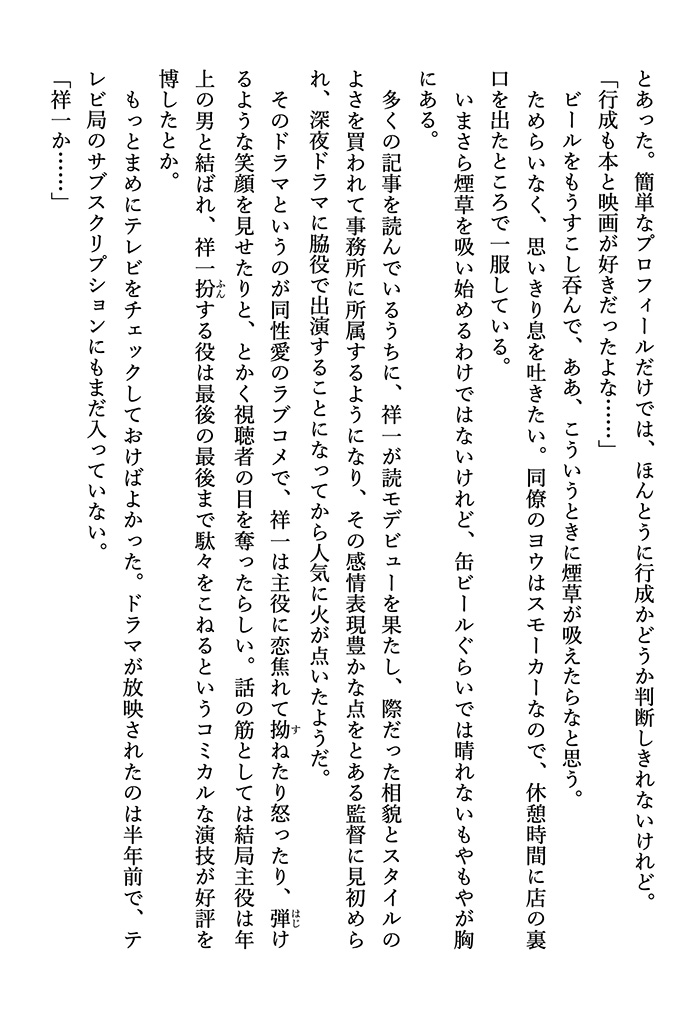 とあった。簡単なプロフィールだけでは、ほんとうに行成かどうか判断しきれないけれど。
「行成も本と映画が好きだったよな……」
ビールをもうすこし呑んで、ああ、こういうときに煙草が吸えたらなと思う。
ためらいなく、思いきり息を吐きたい。同僚のヨウはスモーカーなので、休憩時間に店の裏
口を出たところで一服している。
いまさら煙草を吸い始めるわけではないけれど、缶ビールぐらいでは晴れないもやもやが胸
にある。
多くの記事を読んでいるうちに、祥一が読モデビューを果たし、際だった相貌とスタイルの
よさを買われて事務所に所属するようになり、その感情表現豊かな点をとある監督に見初めら
れ、深夜ドラマに脇役で出演することになってから人気に火が点いたようだ。
そのドラマというのが同性愛のラブコメで、祥一は主役に恋焦れて拗すねたり怒ったり、弾はじけ
るような笑顔を見せたりと、とかく視聴者の目を奪ったらしい。話の筋としては結局主役は年
上の男と結ばれ、祥一扮ふんする役は最後の最後まで駄々をこねるというコミカルな演技が好評を
博したとか。
もっとまめにテレビをチェックしておけばよかった。ドラマが放映されたのは半年前で、テ
レビ局のサブスクリプションにもまだ入っていない。
「祥一か……」